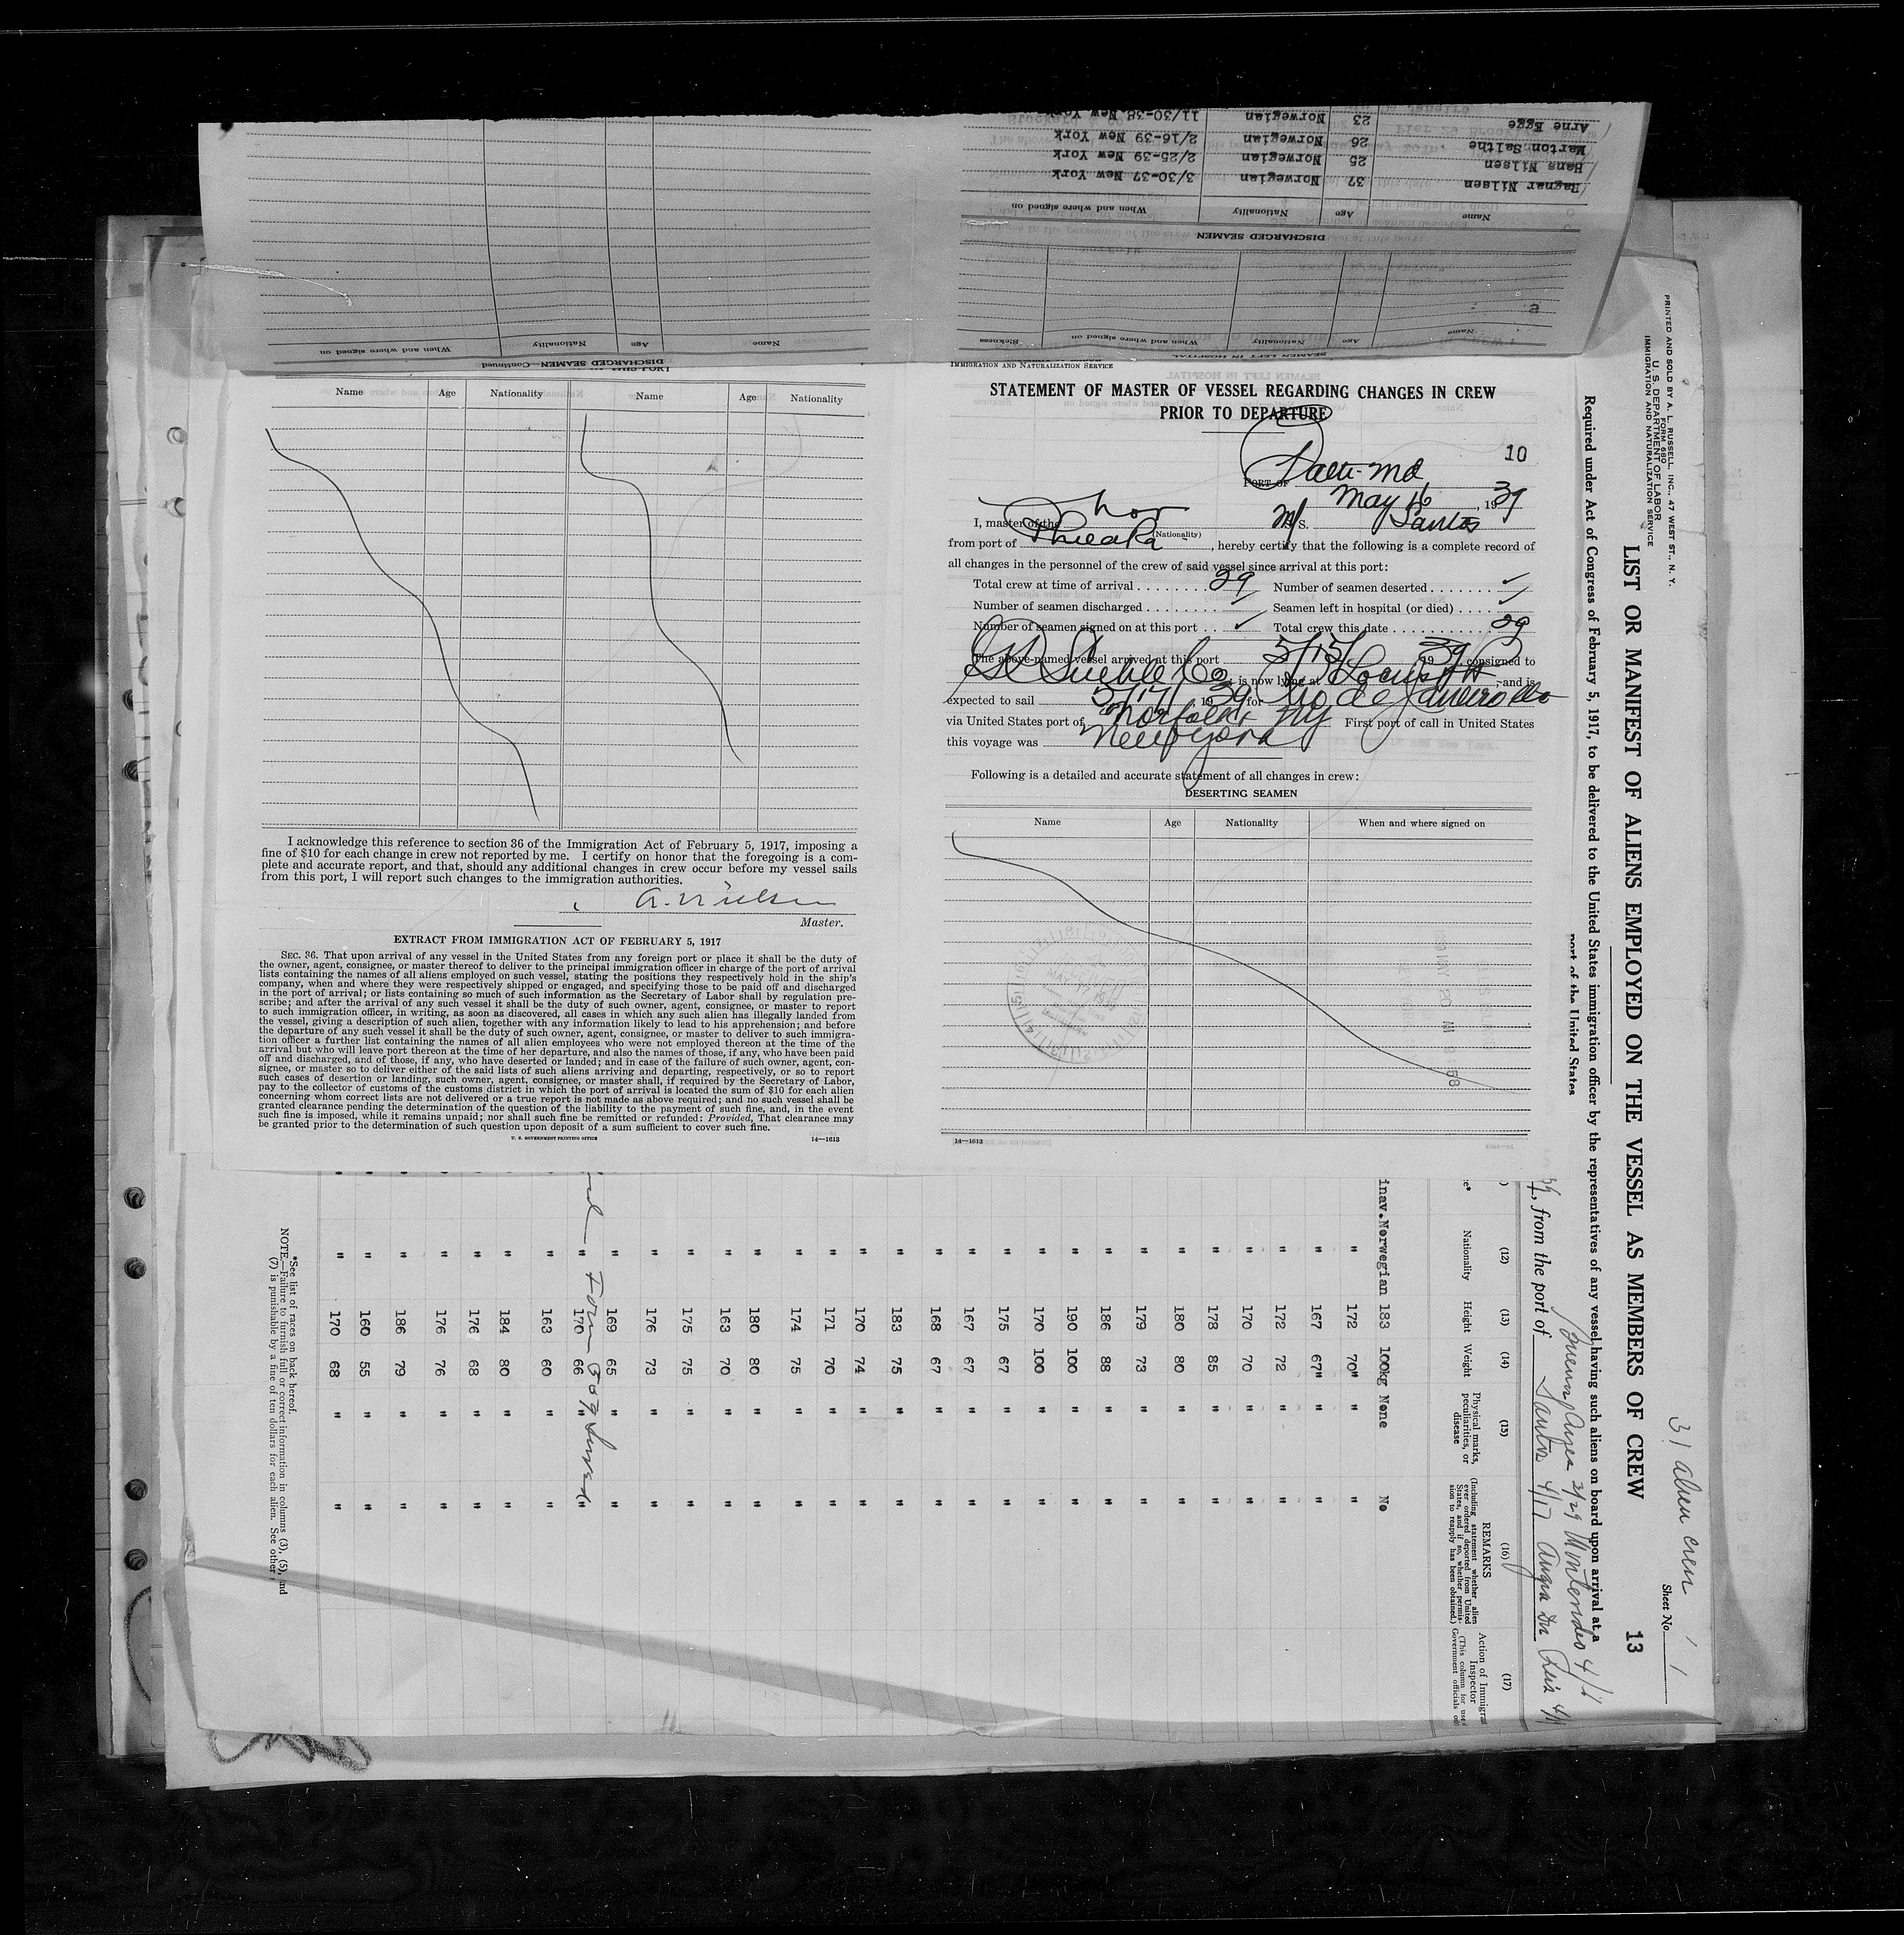 Arne Egge 23 Norwegian 11/30-38 New York
Marton Sælthe 26 Norwegian 2/16-39 New York
Hans Nilsen 25 Norwegian 2/25-39 New York
Ragnar Nilsen 37 Norwegian 3/30-37 New York
Name Age Nationality When and where signed on
DISCHARGED SEAMEN
Name Age Nationality When and where signed on Sickness
SEAMEN LEFT IN HOSPITAL
Name Age Nationality When and where signed on
DISCHARGED SEAMEN—Continued
Name Age Nationality Name Age Nationality
I acknowledge this reference to section 36 of the Immigration Act of February 5, 1917, imposing a
fine of $10 for each change in crew not reported by me. I certify on honor that the foregoing is a com-
plete and accurate report, and that, should any additional changes in crew occur before my vessel sails
from this port, I will report such changes to the immigration authorities.
A. Nielsen
Master.
EXTRACT FROM IMMIGRATION ACT OF FEBRUARY 5, 1917
SEC. 36. That upon arrival of any vessel in the United States from any foreign port or place it shall be the duty of
the owner, agent, consignee, or master thereof to deliver to the principal immigration officer in charge of the port of arrival
lists containing the names of all aliens employed on such vessel, stating the positions they respectively hold in the ship's
company, when and where they were respectively shipped or engaged, and specifying those to be paid off and discharged
in the port of arrival; or lists containing so much of such information as the Secretary of Labor shall by regulation pre-
scribe; and after the arrival of any such vessel it shall be the duty of such owner, agent, consignee, or master to report
to such immigration officer, in writing, as soon as discovered, all cases in which any such alien has illegally landed from
the vessel, giving a description of such alien, together with any information likely to lead to his apprehension; and before
the departure of any such vessel it shall be the duty of such owner, agent, consignee, or master to deliver to such immigra-
tion officer a further list containing the names of all alien employees who were not employed thereon at the time of the
arrival but who will leave port thereon at the time of her departure, and also the names of those, if any, who have been paid
off and discharged, and of those, if any, who have deserted or landed; and in case of the failure of such owner, agent, con-
signee, or master so to deliver either of the said lists of such aliens arriving and departing, respectively, or so to report
such cases of desertion or landing, such owner, agent, consignee, or master shall, if required by the Secretary of Labor,
pay to the collector of customs of the customs district in which the port of arrival is located the sum of $10 for each alien
concerning whom correct lists are not delivered or a true report is not made as above required; and no such vessel shall be
granted clearance pending the determination of the question of the liability to the payment of such fine, and, in the event
such fine is imposed, while it remains unpaid; nor shall such fine be remitted or refunded: Provided, That clearance may
be granted prior to the determination of such question upon deposit of a sum sufficient to cover such fine.
U. S. GOVERNMENT PRINTING OFFICE 14—1613
IMMIGRATION AND NATURALIZATION SERVICE
STATEMENT OF MASTER OF VESSEL REGARDING CHANGES IN CREW
PRIOR TO DEPARTURE
10
PORT OF Balti-Md
May 16, 1939
I, master of the Nor M/S. Santos
(Nationality)
from port of Phila Pa, hereby certify that the following is a complete record of
all changes in the personnel of the crew of said vessel since arrival at this port:
Total crew at time of arrival 29 Number of seamen deserted ✓
Number of seamen discharged ✓ Seamen left in hospital (or died) ✓
Number of seamen signed on at this port ✓ Total crew this date 29
The above-named vessel arrived at this port 5/15/ 1939, consigned to
Co, is now lying at Locust Pt, and is
expected to sail 5/17/ 1939 for Rio de Janeiro
via United States port of Norfolk & NY First port of call in United States
this voyage was New York
Following is a detailed and accurate statement of all changes in crew:
DESERTING SEAMEN
Name Age Nationality When and where signed on
14—1613
PRINTED AND SOLD BY A. L. RUSSELL, INC., 47 WEST ST., N. Y.
FORM 680
U. S. DEPARTMENT OF LABOR
IMMIGRATION AND NATURALIZATION SERVICE
31 alien crew
Sheet No. 1
LIST OR MANIFEST OF ALIENS EMPLOYED ON THE VESSEL AS MEMBERS OF CREW 13
Required under Act of Congress of February 5, 1917, to be delivered to the United States immigration officer by the representatives of any vessel having such aliens on board upon arrival at a
port of the United States
Buenos Aires 3/29 Montevideo 4/
, from the port of Santos 4/17 Angra Dos Reis 4/
(12) (13) (14) (15) (16) (17)
Nationality Height Weight Physical marks, peculiarities, or disease REMARKS (Including statement whether alien ever ordered deported from United States, and if so, whether permis- sion to reapply has been obtained) Action of Immigra Inspector (This column for use Government officials o
inav. Norwegian 183 100kg None No
" 172 70" " "
" 167 67" " "
" 172 72 " "
" 170 70 " "
" 178 85 " "
" 180 80 " "
" 179 73 " "
" 186 88 " "
" 190 100 " "
" 170 100 " "
" 175 67 " "
" 167 67 " "
" 168 67 " "
" 183 75 " "
" 170 74 " "
" 171 70 " "
" 174 75 " "
" 180 80 " "
" 163 70 " "
" 175 75 " "
" 176 73 " "
" 169 65 " "
" 170 66 " "
Form 807 Served
" 163 60 " "
" 184 80 " "
" 176 68 " "
" 176 76 " "
" 186 79 " "
" 160 55 " "
" 170 68 " "
*See list of races on back hereof.
NOTE.—Failure to furnish full or correct information in columns (3), (5), and
(7) is punishable by a fine of ten dollars for each alien. See other